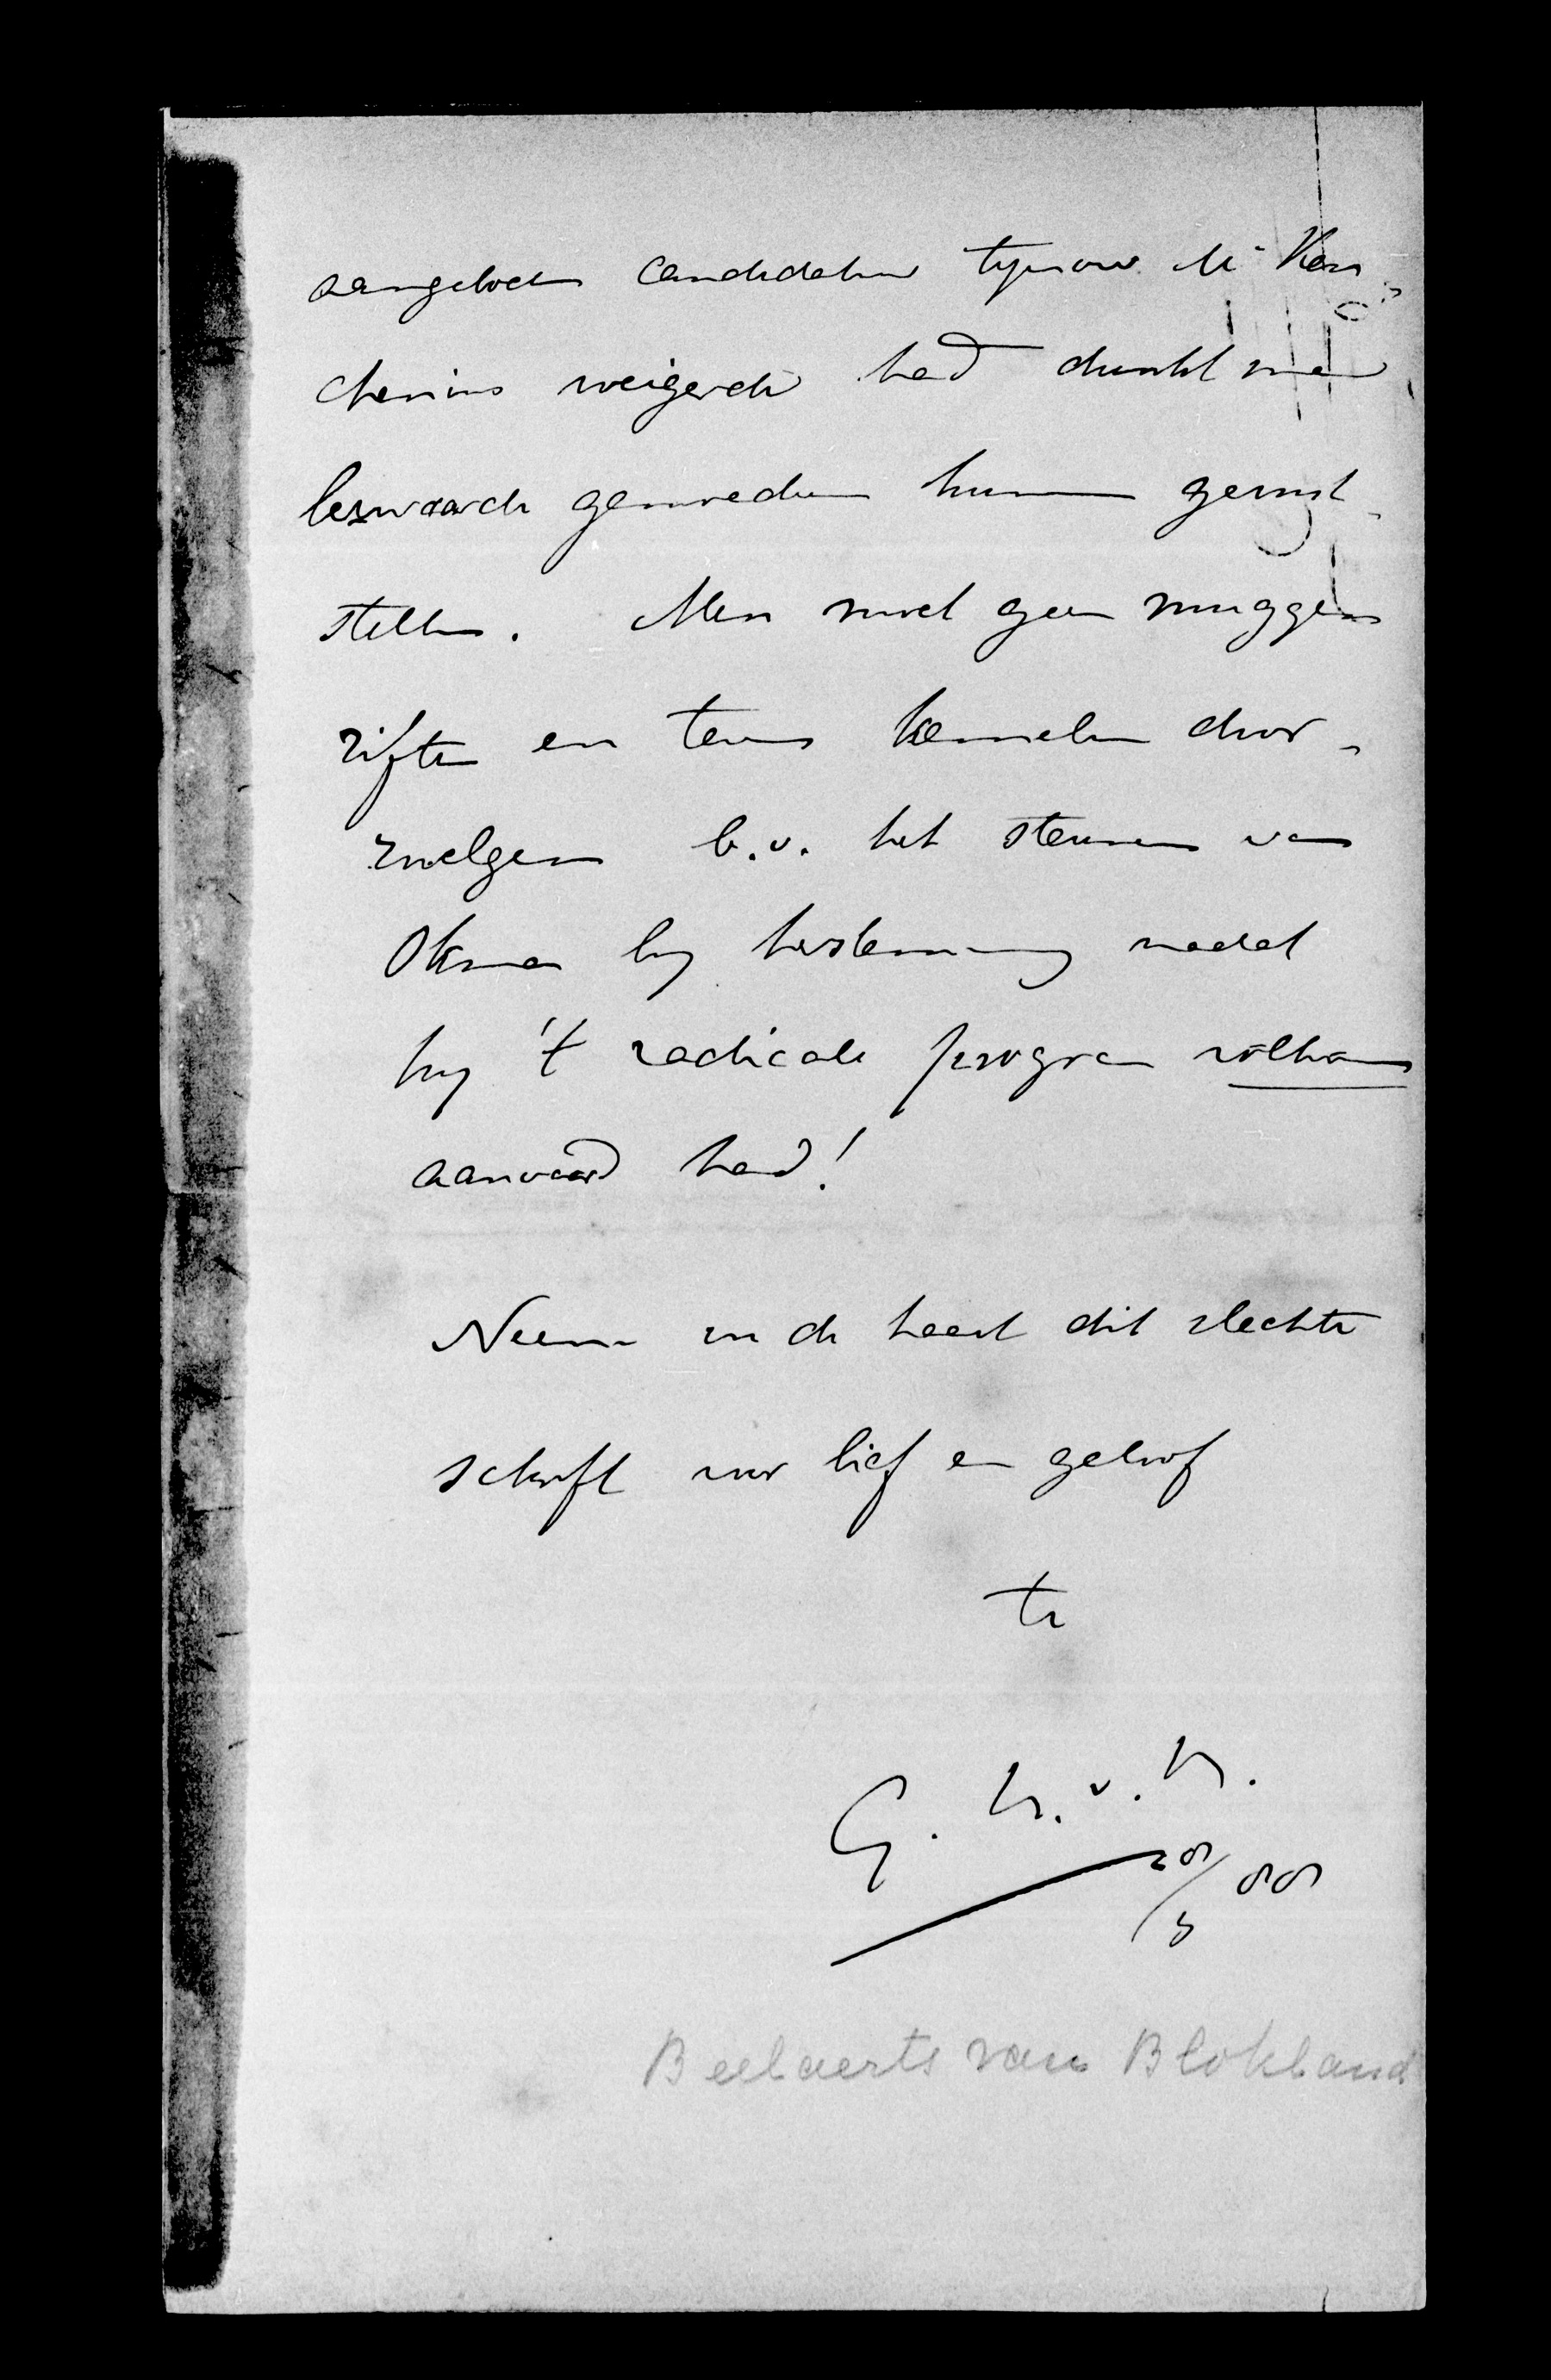 aangeboden candidatuur tijdens Mr Keu-
chenius weigerde had dunkt me
bezwaarde gemoederen kunnen gerust-
stellen. Men moet geen muggen
ziften en tevens kemelen door-
zwelgen b.v. het steunen van
Okma bij herstemming nadat
hij 't radicale program voltooid
aanvaard had!
Neem in de haast dit slechte
schrift voor lief en geloof
tt
G. h. v. h.
28/5 88
Beelaerts van Blokland